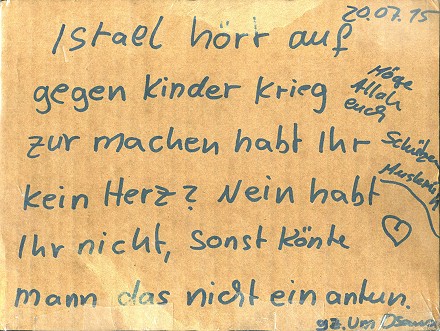 20.07.15
Istael hört auf
gegen Kinder Krieg
zur machen habt Ihr
kein Herz? Nein habt
Ihr nicht, Sonst Könte
mann das nicht ein antun.
Möge
Allah
euch
Schützen
gz. Um